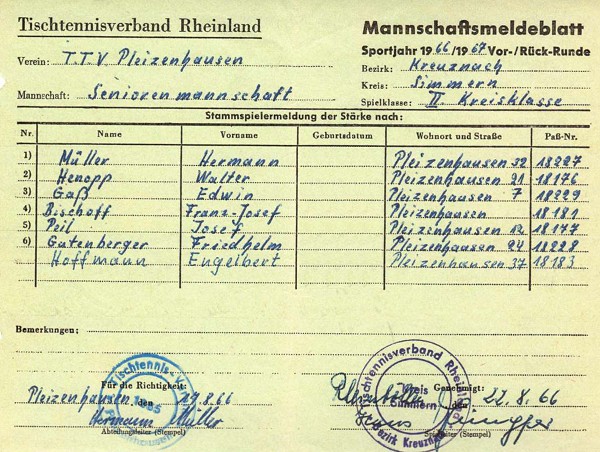 Tischtennisverband Rheinland
Mannschaftsmeldeblatt
Sportjahr 1966/1967 Vor-/Rück-Runde
Verein: T.T.V Pleizenhausen
Bezirk: Kreuznach
Kreis: Simmern
Mannschaft: Seniorenmannschaft
Spielklasse: II. Kreisklasse
Stammspielermeldung der Stärke nach:
Nr. Name Vorname Geburtsdatum Wohnort und Straße Paß-Nr.
1) Müller Hermann Pleizenhausen 32 18227
2) Henopp Walter Pleizenhausen 21 18176
3) Gaß Edwin Pleizenhausen 7 18229
4) Bischoff Franz-Josef Pleizenhausen 18181
5) Peil Josef Pleizenhausen 12 18177
6) Gutenberger Friedhelm Pleizenhausen 24 18228
Hoffmann Engelbert Pleizenhausen 37 18183
Bemerkungen:
Für die Richtigkeit:
Pleizenhausen den 19.8.66
Hermann Müller
Abteilungsleiter (Stempel)
Tischtennis
Tischtennisverband Rheinland
Kreis Simmern
Bezirk Kreuznach
Genehmigt:
den 22.8.66
(Stempel)